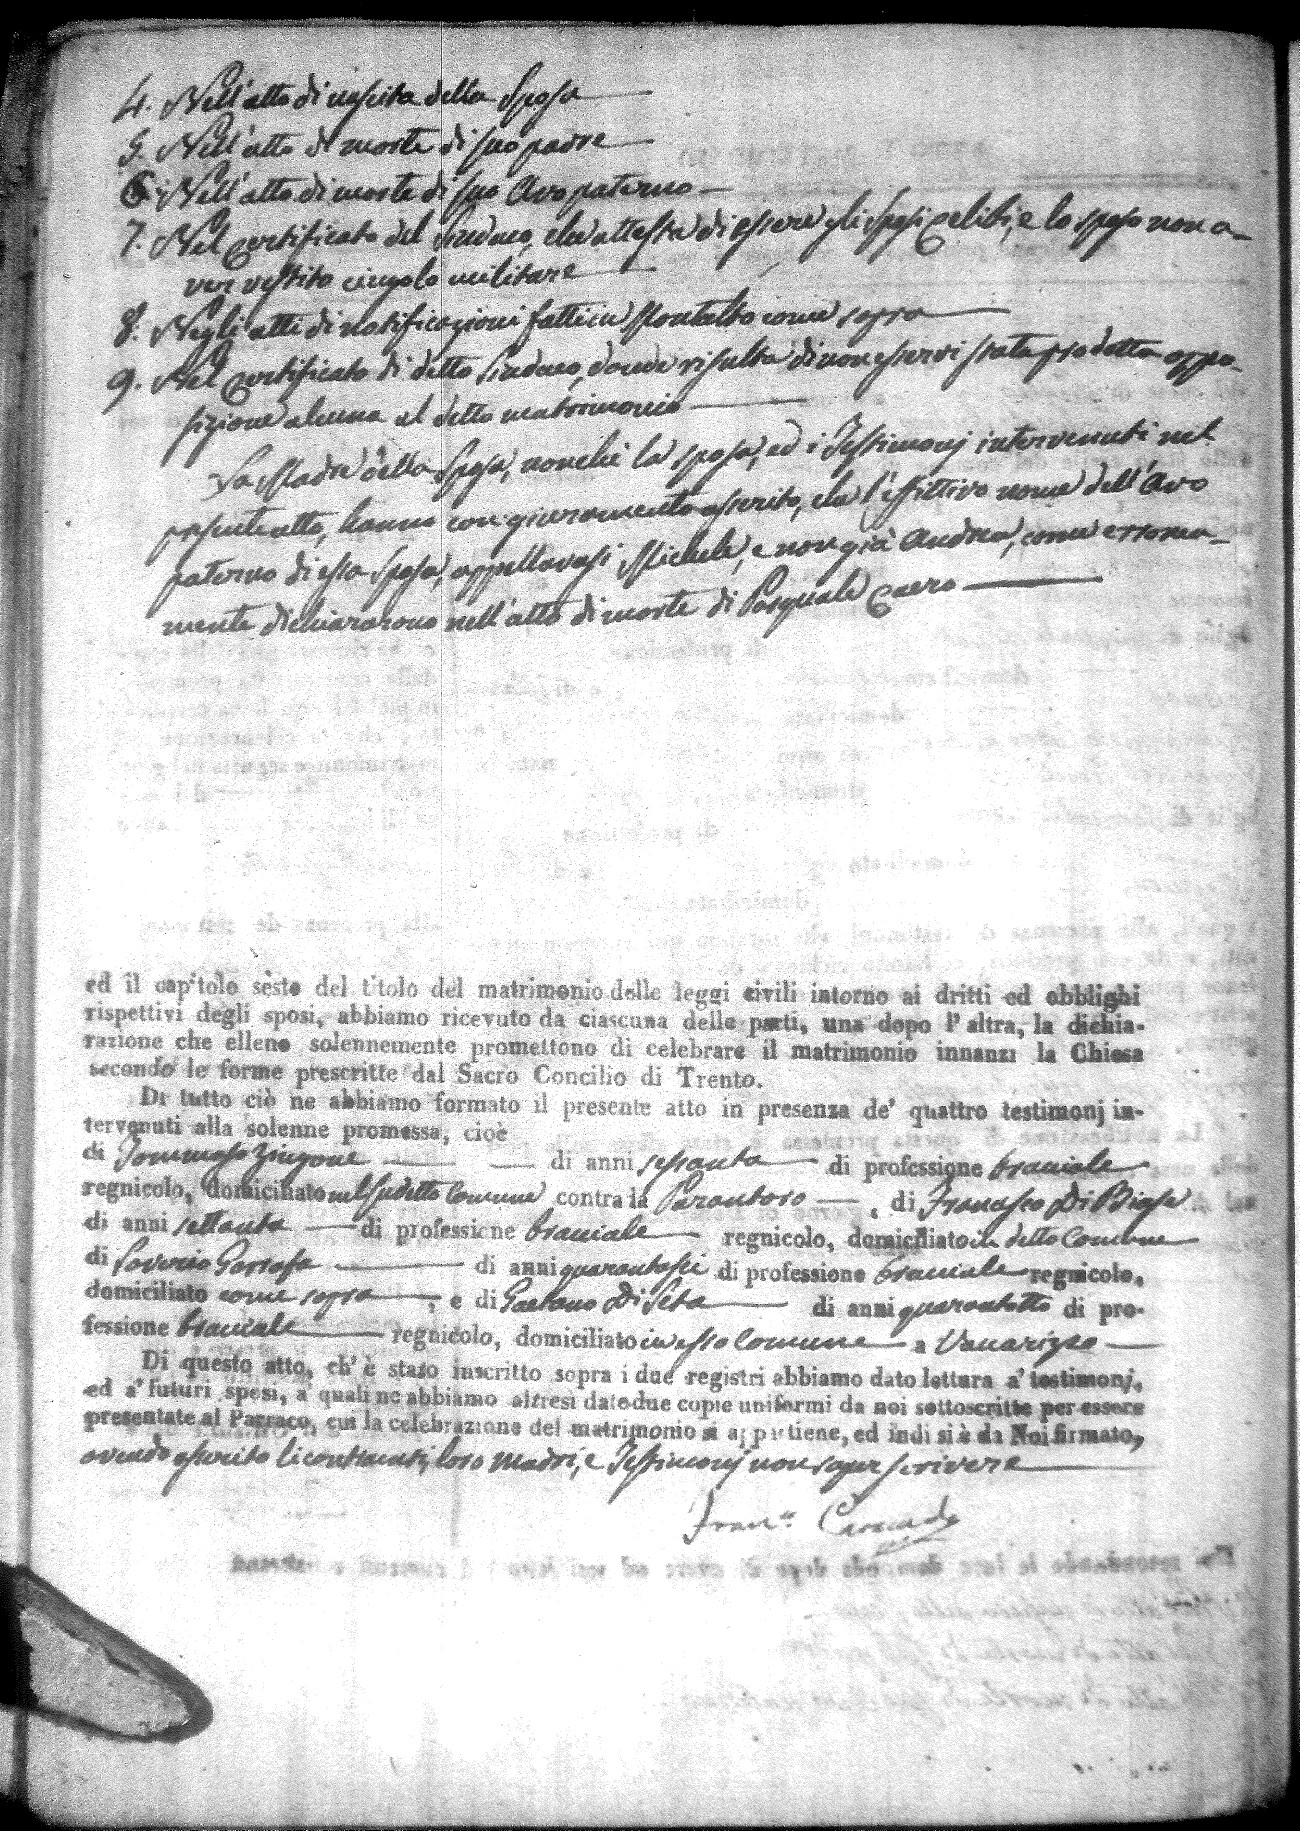 4. Nell'atto di nascita della Sposa
5. Nell'atto di morte di suo padre
6. Nell'atto di morte di suo Avo paterno
7. Nel certificato del Sindaco, che attesta di essere gli sposi celibi, e lo sposo non a-
ver vestito cingolo militare
8. Negli atti di notificazioni fatti in Montalto come sopra
9. Nel certificato di detto Sindaco, donde risulta di non esservi stata prodotta oppo-
sizione alcuna al detto matrimonio
La Madre della Sposa, nonché la sposa, ed i Testimonj intervenuti nel
presente atto, hanno con giuramento asserito, che l'effettivo nome dell'Avo
paterno di essa sposa, appellavasi Michele, e non già Andrea, come erronea-
mente dichiararono nell'atto di morte di Pasquale
ed il capitolo sesto del titolo del matrimonio delle leggi civili intorno ai dritti ed obblighi
rispettivi degli sposi, abbiamo ricevuto da ciascuna delle parti, una dopo l'altra, la dichia-
razione che elleno solennemente promettono di celebrare il matrimonio innanzi la Chiesa
secondo le forme prescritte dal Sacro Concilio di Trento.
Di tutto ciò ne abbiamo formato il presente atto in presenza de' quattro testimonj in-
tervenuti alla solenne promessa, cioè
di Tommaso Zingone di anni sessanta di professione bracciale
regnicolo, domiciliato nel sudetto Comune contra la Parantoro, di Francesco Di Biase
di anni settanta di professione bracciale regnicolo, domiciliato in detto Comune
di Saverio di anni quarantasei di professione bracciale regnicolo,
domiciliato come sopra, e di Gaetano Di Seta di anni quarantotto di pro-
fessione bracciale regnicolo, domiciliato in esso Comune a Vaccarizzo
Di questo atto, ch'è stato inscritto sopra i due registri abbiamo dato lettura a' testimonj,
ed a' futuri sposi, a' quali ne abbiamo altresì date due copie uniformi da noi sottoscritte per essere
presentate al Parroco, cui la celebrazione del matrimonio si appartiene, ed indi si è da Noi firmato,
avendo asserito li contraenti, loro madri, e Testimonj non saper scrivere